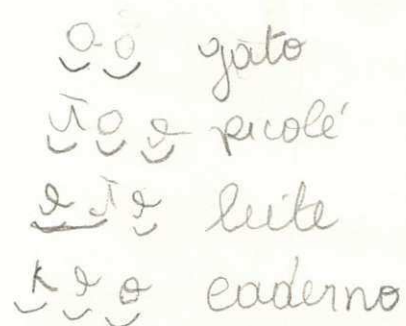 O O gato
I O e picolé
e I e leite
K e o caderno